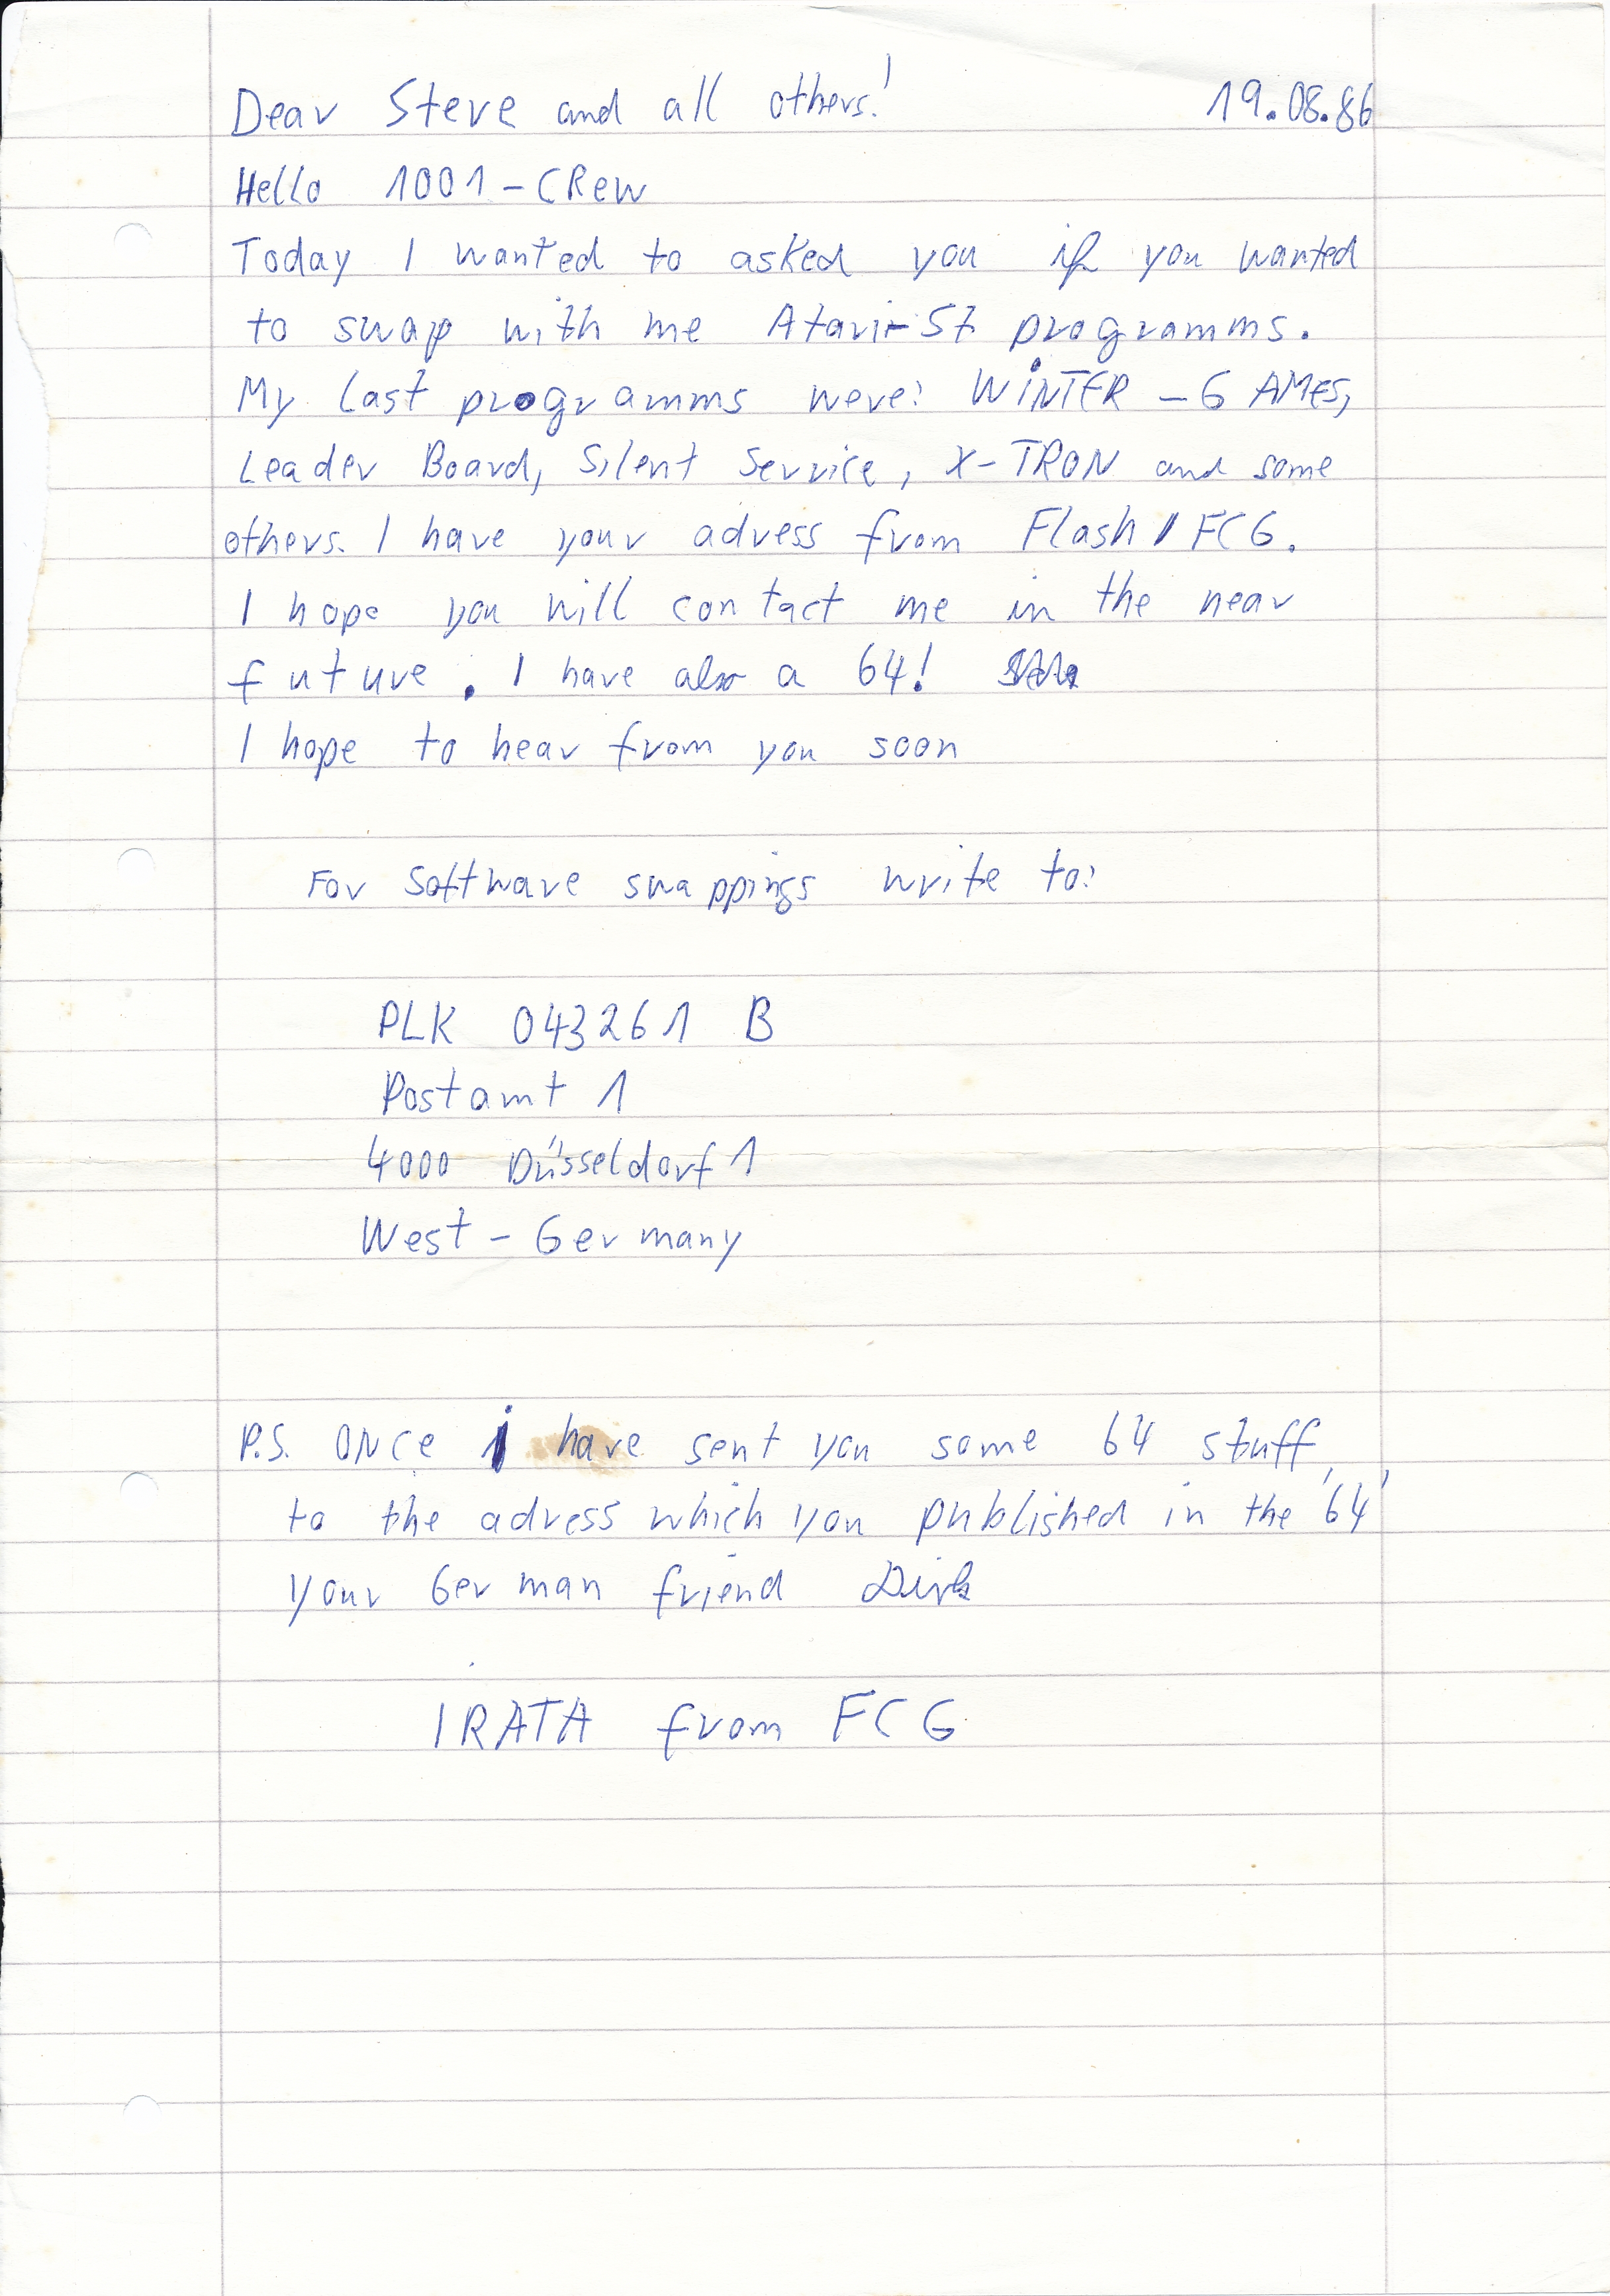 Dear Steve and all others! 19.08.86
Hello 1001-CRew
Today I wanted to asked you if you wanted
to swap with me Atari-ST programms.
My last programms were: WiNTER-GAMES,
Leader Board, Silent Service, X-TRON and some
others. I have your adress from Flash/FCG.
I hope you will contact me in the near
future. I have also a 64!
I hope to hear from you soon
For Software swappings write to:
PLK 043261 B
Postamt 1
4000 Düsseldorf 1
West-Germany
P.S. ONCe i have sent you some 64 stuff
to the adress which you published in the '64'
your German friend Dirk
IRATA from FCG